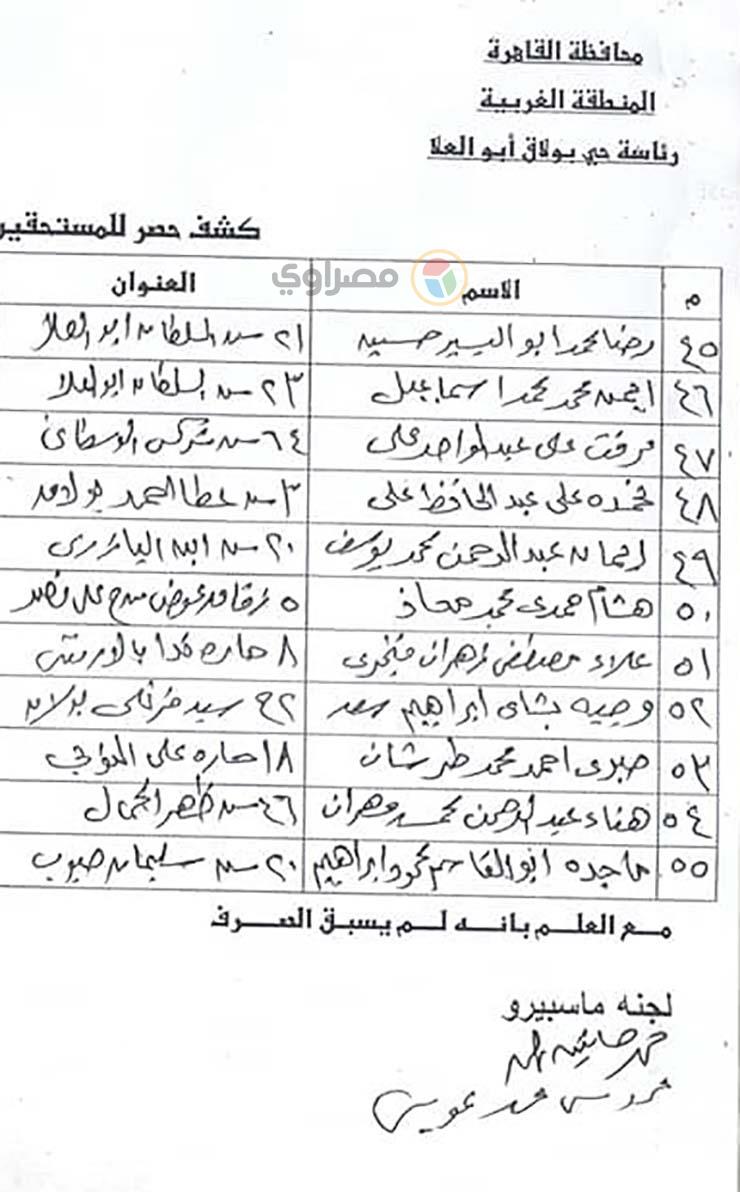 محافظة القاهرة
المنطقة الغربية
رئاسة حي بولاق أبو العلا
كشف حصر للمستحقين
مصراوي
م الاسم العنوان
٤٥ رضا محمد ابو اليسير حسين ٢١ ش السلطان ابو العلا
٤٦ ايمن محمد محمد اسماعيل ٢٣ ش السلطان ابو العلا
٤٧ مرفت على عبد الواحد على ٦٤ ش شركس الوسطانى
٤٨ على عبد الحافظ على ٣ ش عطا بولاق
٤٩ ايمان عبد الرحمن محمد يوسف ٢٠ ش
٥٠ هشام حمدى محمد معاذ ٥ زقاق عوض
٥١ علاء مصطفى زهران ٨ حارة
٥٢ وجيه بشاى ابراهيم سعد ٢٢ سيد بولاق
٥٣ صبرى احمد محمد طرشان ١٨ حاره على
٥٤ هناء عبد الرحمن محمد مهران ٤٦ ش ظهر الجمال
٥٥ ماجده ابو القاسم محمود ابراهيم ٢٠ ش سليمان
مع العلم بانه لم يسبق الصرف
لجنه ماسبيرو